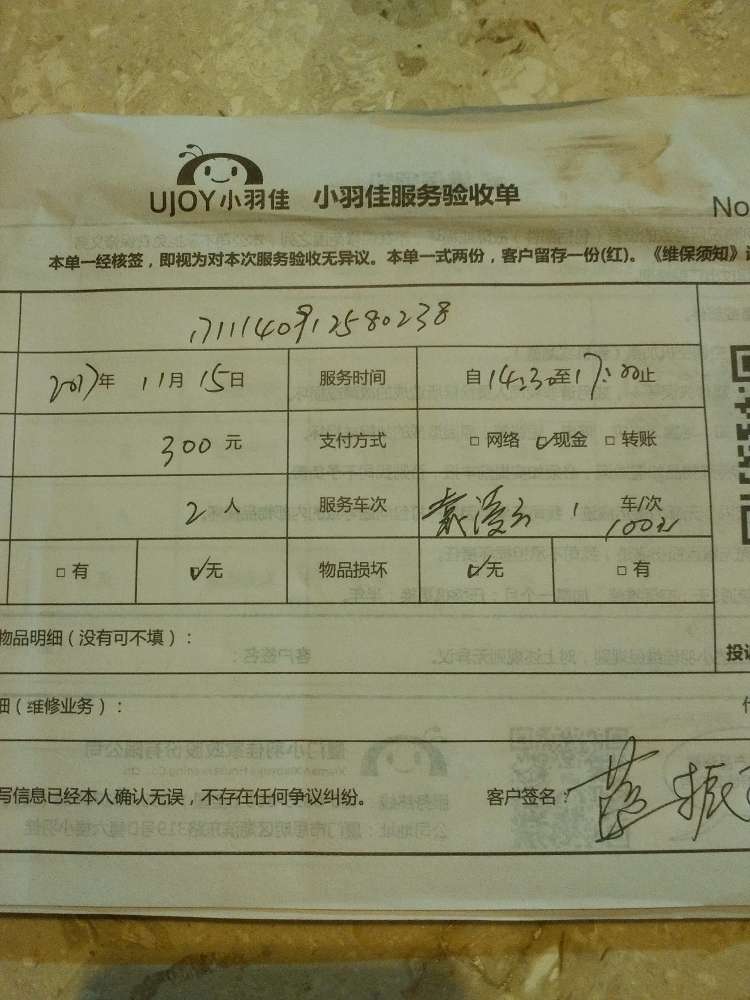 UJOY小羽佳 小羽佳服务验收单
No
本单一经核签，即视为对本次服务验收无异议。本单一式两份，客户留存一份(红)。《维保须知》
1711140912580238
2017年 11月 15日 服务时间 自14:30至17:00止
300元 支付方式 □网络 ☑现金 □转账
2人 服务车次 1 车/次
100元
□有 ☑无 物品损坏 ☑无 □有
物品明细（没有可不填）：
投
细（维修业务）：
写信息已经本人确认无误，不存在任何争议纠纷。 客户签名：薛振